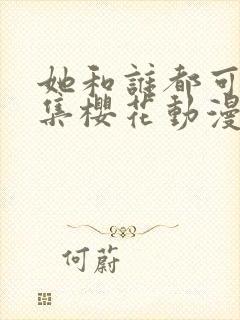 她和誰都可
集櫻花動漫
何蔚